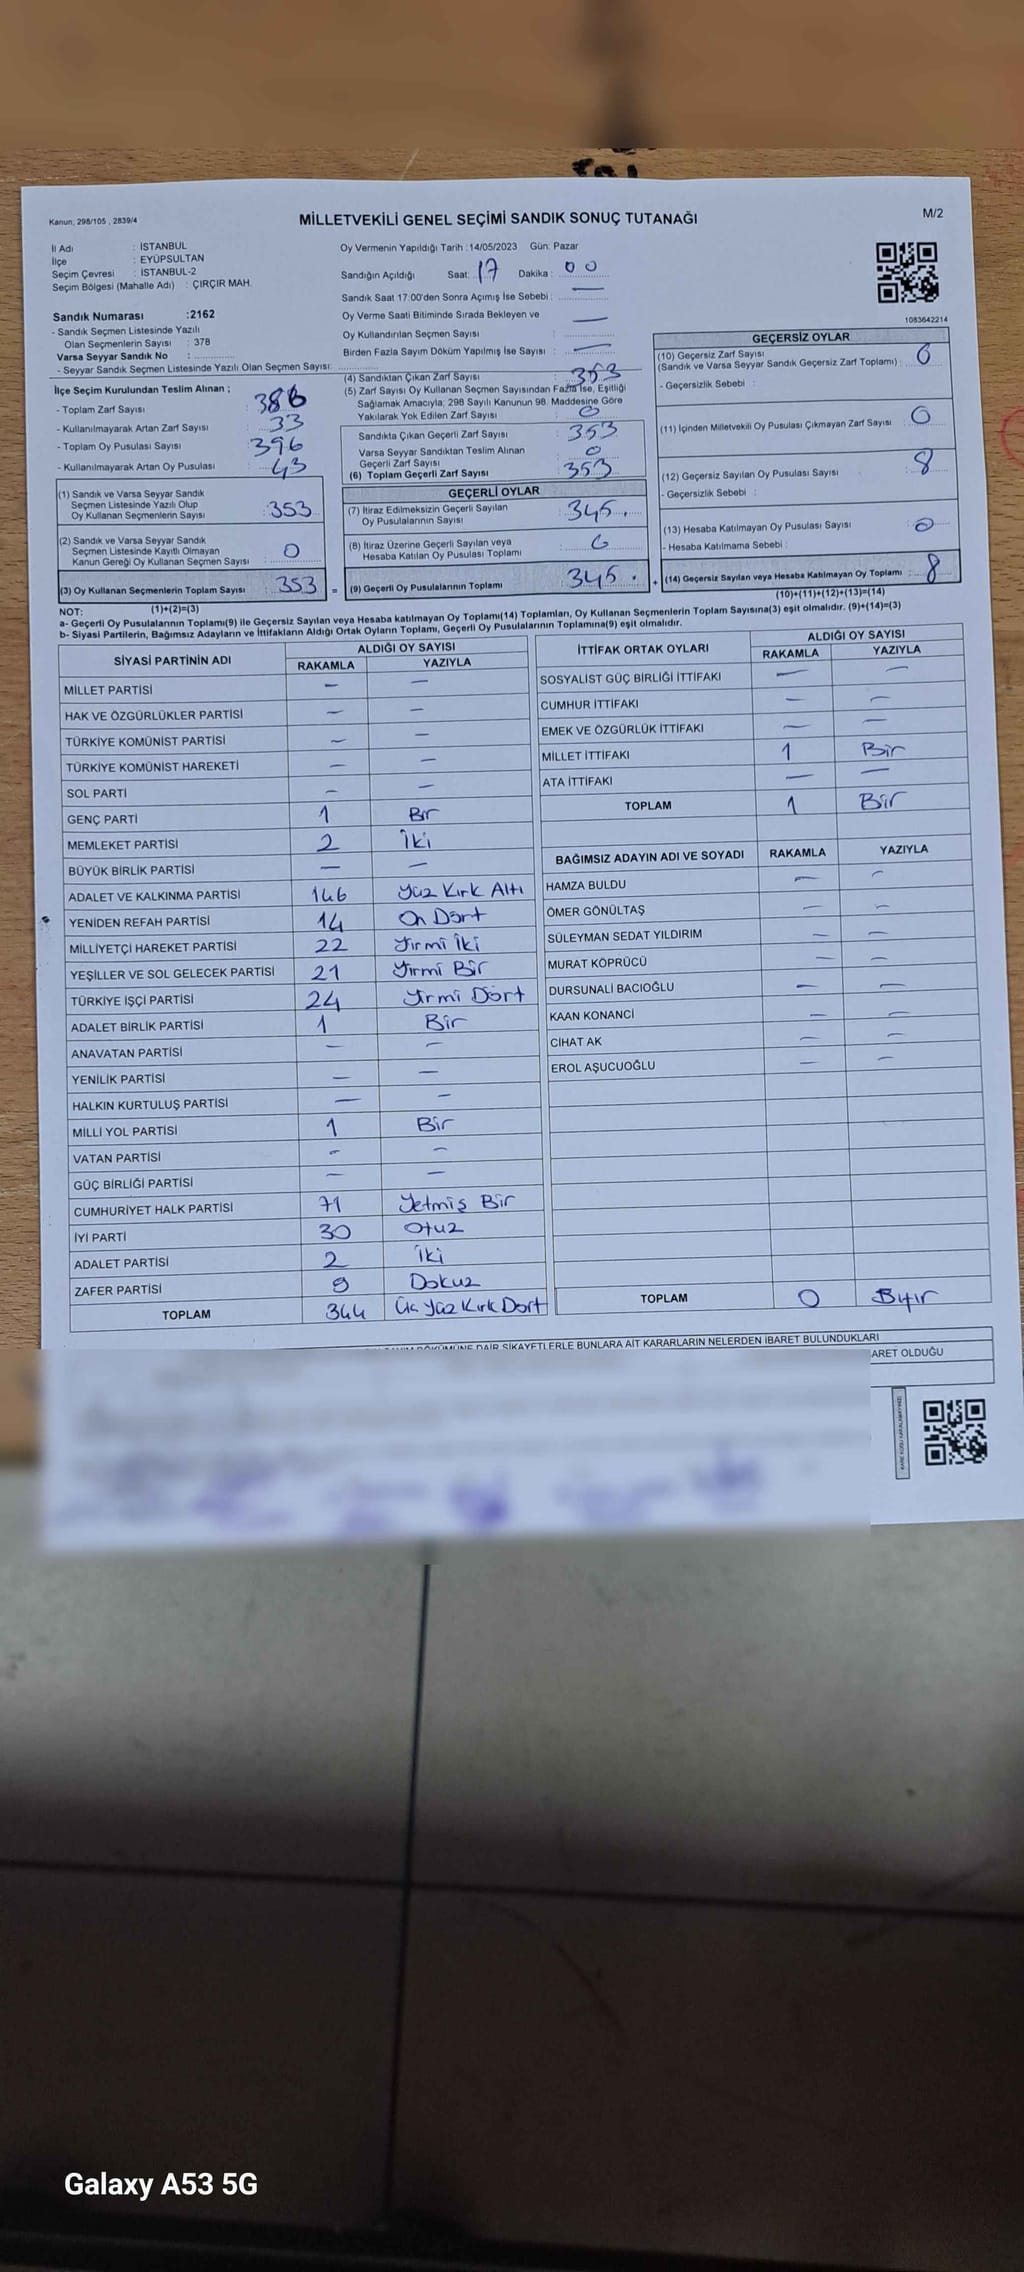 Kanun; 298/105 , 2839/4
MİLLETVEKİLİ GENEL SEÇİMİ SANDIK SONUÇ TUTANAĞI
M/2
İl Adı : İSTANBUL
İlçe : EYÜPSULTAN
Seçim Çevresi : İSTANBUL-2
Seçim Bölgesi (Mahalle Adı) : ÇIRÇIR MAH.
Oy Vermenin Yapıldığı Tarih :14/05/2023 Gün: Pazar
Sandığın Açıldığı Saat: 17 Dakika : 00
Sandık Saat 17:00'den Sonra Açımış İse Sebebi : —
Oy Verme Saati Bitiminde Sırada Bekleyen ve
Oy Kullandırılan Seçmen Sayısı : —
Birden Fazla Sayım Döküm Yapılmış İse Sayısı : —
1083642214
Sandık Numarası :2162
- Sandık Seçmen Listesinde Yazılı
Olan Seçmenlerin Sayısı : 378
Varsa Seyyar Sandık No :
- Seyyar Sandık Seçmen Listesinde Yazılı Olan Seçmen Sayısı:
İlçe Seçim Kurulundan Teslim Alınan ;
- Toplam Zarf Sayısı : 386
- Kullanılmayarak Artan Zarf Sayısı : 33
- Toplam Oy Pusulası Sayısı : 396
- Kullanılmayarak Artan Oy Pusulası : 43
(1) Sandık ve Varsa Seyyar Sandık
Seçmen Listesinde Yazılı Olup
Oy Kullanan Seçmenlerin Sayısı : 353
(2) Sandık ve Varsa Seyyar Sandık
Seçmen Listesinde Kayıtlı Olmayan
Kanun Gereği Oy Kullanan Seçmen Sayısı : 0
(3) Oy Kullanan Seçmenlerin Toplam Sayısı : 353
(1)+(2)=(3)
(4) Sandıktan Çıkan Zarf Sayısı : 353
(5) Zarf Sayısı Oy Kullanan Seçmen Sayısından Fazla İse, Eşitliği
Sağlamak Amacıyla; 298 Sayılı Kanunun 98. Maddesine Göre
Yakılarak Yok Edilen Zarf Sayısı : 0
Sandıkta Çıkan Geçerli Zarf Sayısı : 353
Varsa Seyyar Sandıktan Teslim Alınan
Geçerli Zarf Sayısı : 0
(6) Toplam Geçerli Zarf Sayısı : 353
GEÇERLİ OYLAR
(7) İtiraz Edilmeksizin Geçerli Sayılan
Oy Pusulalarının Sayısı : 345.
(8) İtiraz Üzerine Geçerli Sayılan veya
Hesaba Katılan Oy Pusulası Toplamı :
= (9) Geçerli Oy Pusulalarının Toplamı : 345.
GEÇERSİZ OYLAR
(10) Geçersiz Zarf Sayısı
(Sandık ve Varsa Seyyar Sandık Geçersiz Zarf Toplamı) : 0
- Geçersizlik Sebebi :
(11) İçinden Milletvekili Oy Pusulası Çıkmayan Zarf Sayısı : 0
(12) Geçersiz Sayılan Oy Pusulası Sayısı : 8
- Geçersizlik Sebebi :
(13) Hesaba Katılmayan Oy Pusulası Sayısı : 0
- Hesaba Katılmama Sebebi :
+ (14) Geçersiz Sayılan veya Hesaba Katılmayan Oy Toplamı : 8
(10)+(11)+(12)+(13)=(14)
NOT:
a- Geçerli Oy Pusulalarının Toplamı(9) ile Geçersiz Sayılan veya Hesaba katılmayan Oy Toplamı(14) Toplamları, Oy Kullanan Seçmenlerin Toplam Sayısına(3) eşit olmalıdır. (9)+(14)=(3)
b- Siyasi Partilerin, Bağımsız Adayların ve İttifakların Aldığı Ortak Oyların Toplamı, Geçerli Oy Pusulalarının Toplamına(9) eşit olmalıdır.
SİYASİ PARTİNİN ADI
ALDIĞI OY SAYISI
RAKAMLA YAZIYLA
MİLLET PARTİSİ — —
HAK VE ÖZGÜRLÜKLER PARTİSİ — —
TÜRKİYE KOMÜNİST PARTİSİ — —
TÜRKİYE KOMÜNİST HAREKETİ — —
SOL PARTİ — —
GENÇ PARTİ 1 Bir
MEMLEKET PARTİSİ 2 İki
BÜYÜK BİRLİK PARTİSİ — —
ADALET VE KALKINMA PARTİSİ 146 Yüz Kırk Altı
YENİDEN REFAH PARTİSİ 14 On Dört
MİLLİYETÇİ HAREKET PARTİSİ 22 Yirmi İki
YEŞİLLER VE SOL GELECEK PARTİSİ 21 Yirmi Bir
TÜRKİYE İŞÇİ PARTİSİ 24 Yirmi Dört
ADALET BİRLİK PARTİSİ 1 Bir
ANAVATAN PARTİSİ — —
YENİLİK PARTİSİ — —
HALKIN KURTULUŞ PARTİSİ — —
MİLLİ YOL PARTİSİ 1 Bir
VATAN PARTİSİ — —
GÜÇ BİRLİĞİ PARTİSİ — —
CUMHURİYET HALK PARTİSİ 71 Yetmiş Bir
İYİ PARTİ 30 Otuz
ADALET PARTİSİ 2 İki
ZAFER PARTİSİ 9 Dokuz
TOPLAM 344 Üç Yüz Kırk Dört
İTTİFAK ORTAK OYLARI
ALDIĞI OY SAYISI
RAKAMLA YAZIYLA
SOSYALİST GÜÇ BİRLİĞİ İTTİFAKI — —
CUMHUR İTTİFAKI — —
EMEK VE ÖZGÜRLÜK İTTİFAKI — —
MİLLET İTTİFAKI 1 Bir
ATA İTTİFAKI — —
TOPLAM 1 Bir
BAĞIMSIZ ADAYIN ADI VE SOYADI RAKAMLA YAZIYLA
HAMZA BULDU — —
ÖMER GÖNÜLTAŞ — —
SÜLEYMAN SEDAT YILDIRIM — —
MURAT KÖPRÜCÜ — —
DURSUNALİ BACIOĞLU — —
KAAN KONANCİ — —
CİHAT AK — —
EROL AŞUCUOĞLU — —
TOPLAM 0
DAİR ŞİKAYETLERLE BUNLARA AİT KARARLARIN NELERDEN İBARET BULUNDUKLARI
ARET OLDUĞU
Galaxy A53 5G